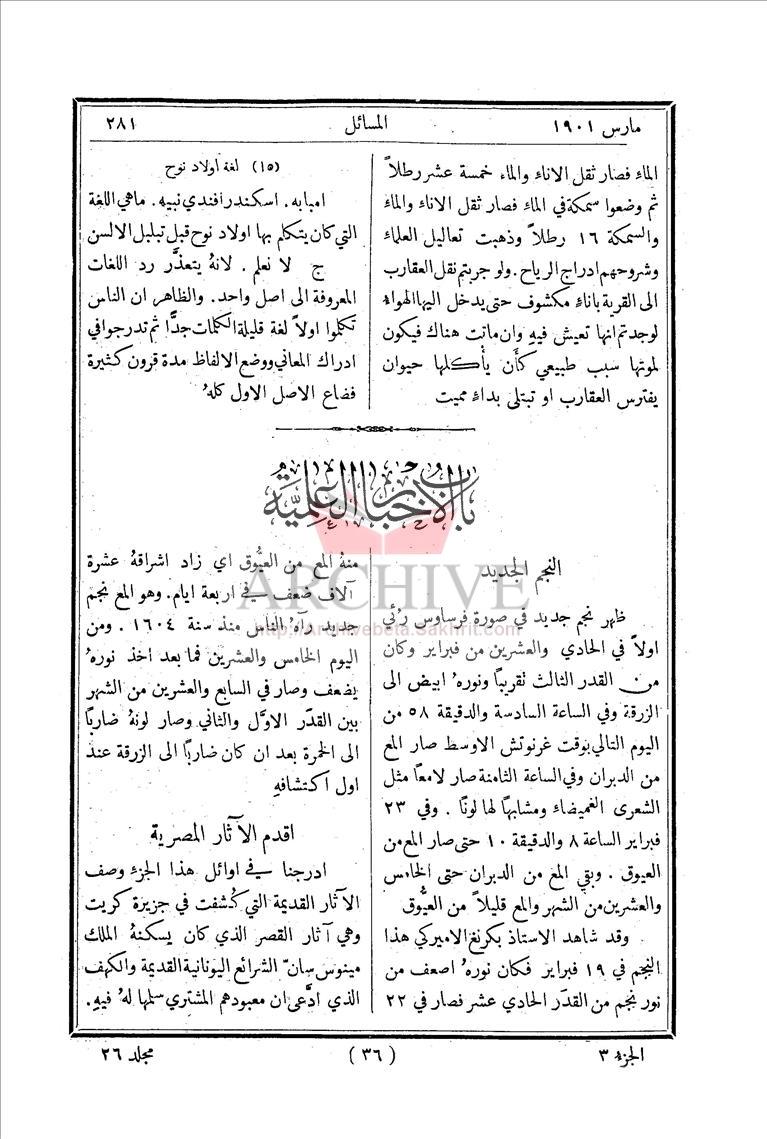 مارس ١٩٠١
المسائل
٢٨١
الماء فصار ثقل الاناء والماء خمسة عشر رطلاً
ثم وضعوا سمكة في الماء فصار ثقل الاناء والماء
والسمكة ١٦ رطلاً وذهبت تعاليل العلماء
وشروحهم ادراج الرياح. ولو جربتم نقل العقارب
الى القرية باناءٍ مكشوف حتى يدخل اليها الهواء
لوجدتم انها تعيش فيهِ وان ماتت هناك فيكون
لموتها سبب طبيعي كأن يأكلها حيوان
يفترس العقارب او تبتلى بداءٍ مميت
(١٥) لغة اولاد نوح
امبابه. اسكندر افندي نبيه. ما هي اللغة
التي كان يتكلم بها اولاد نوح قبل تبلبل الالسن
ج لا نعلم. لانهُ يتعذَّر رد اللغات
المعروفة الى اصل واحد. والظاهر ان الناس
تكلموا اولاً لغة قليلة الكلمات جدًّا ثم تدرجوا في
ادراك المعاني ووضع الالفاظ مدة قرون كثيرة
فضاع الاصل الاول كلهُ
باب الاخبار العلمية
النجم الجديد
ظهر نجم جديد في صورة فرساوس رُئي
اولاً في الحادي والعشرين من فبراير وكان
من القدر الثالث تقريبًا ونورهُ ابيض الى
الزرقة وفي الساعة السادسة والدقيقة ٥٨ من
اليوم التالي بوقت غرنوتش الاوسط صار المع
من الدبران وفي الساعة الثامنة صار لامعًا مثل
الشعرى الغميضاء ومشابهًا لها لونًا. وفي ٢٣
فبراير الساعة ٨ والدقيقة ١٠ حتى صار المع من
العيوق. وبقي المع من الدبران حتى الخامس
والعشرين من الشهر والمع قليلاً من العيُّوق
وقد شاهد الاستاذ بكرنغ الاميركي هذا
النجم في ١٩ فبراير فكان نورهُ اضعف من
نور نجم من القدَر الحادي عشر فصار في ٢٢
منهُ المع من العيُّوق اي زاد اشراقهُ عشرة
آلاف ضعف في اربعة ايام. وهو المع نجم
جديد رآهُ الناس منذ سنة ١٦٠٤. ومن
اليوم الخامس والعشرين فما بعد اخذ نورهُ
يضعف وصار في السابع والعشرين من الشهر
بين القدَر الاوَّل والثاني وصار لونهُ ضاربًا
الى الحمرة بعد ان كان ضاربًا الى الزرقة عند
اول اكتشافهِ
اقدم الآثار المصرية
ادرجنا في اوائل هذا الجزء وصف
الآثار القديمة التي كُشفت في جزيرة كريت
وهي آثار القصر الذي كان يسكنهُ الملك
مينوس سانّ الشرائع اليونانية القديمة والكهف
الذي ادَّعى ان معبودهم المشتري سلمها لهُ فيهِ.
الجزء ٣
(٣٦)
مجلد ٢٦
ARCHIVE
http://Archivebeta.Sakhrit.com